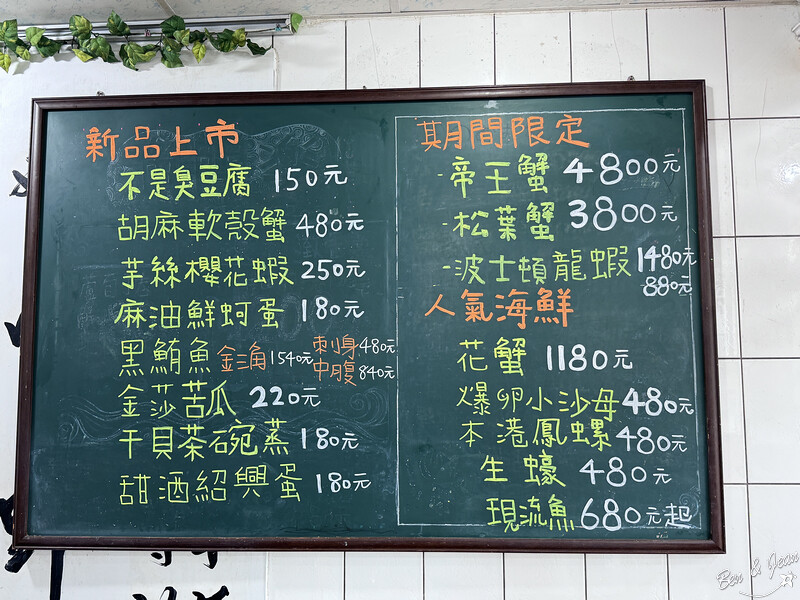 新品上市
不是臭豆腐 150元
胡麻軟殼蟹 480元
芋絲櫻花蝦 250元
麻油鮮蚵蛋 180元
黑鮪魚 金三角 1540元 刺身 480元
中腹 840元
金莎苦瓜 220元
干貝茶碗蒸 180元
甜酒紹興蛋 180元
期間限定
·帝王蟹 4800元
·松葉蟹 3800元
·波士頓龍蝦 1480元
880元
人氣海鮮
花蟹 1180元
爆卵小沙母 480元
本港鳳螺 480元
生蠔 480元
現流魚 680元起
Ben & Jean